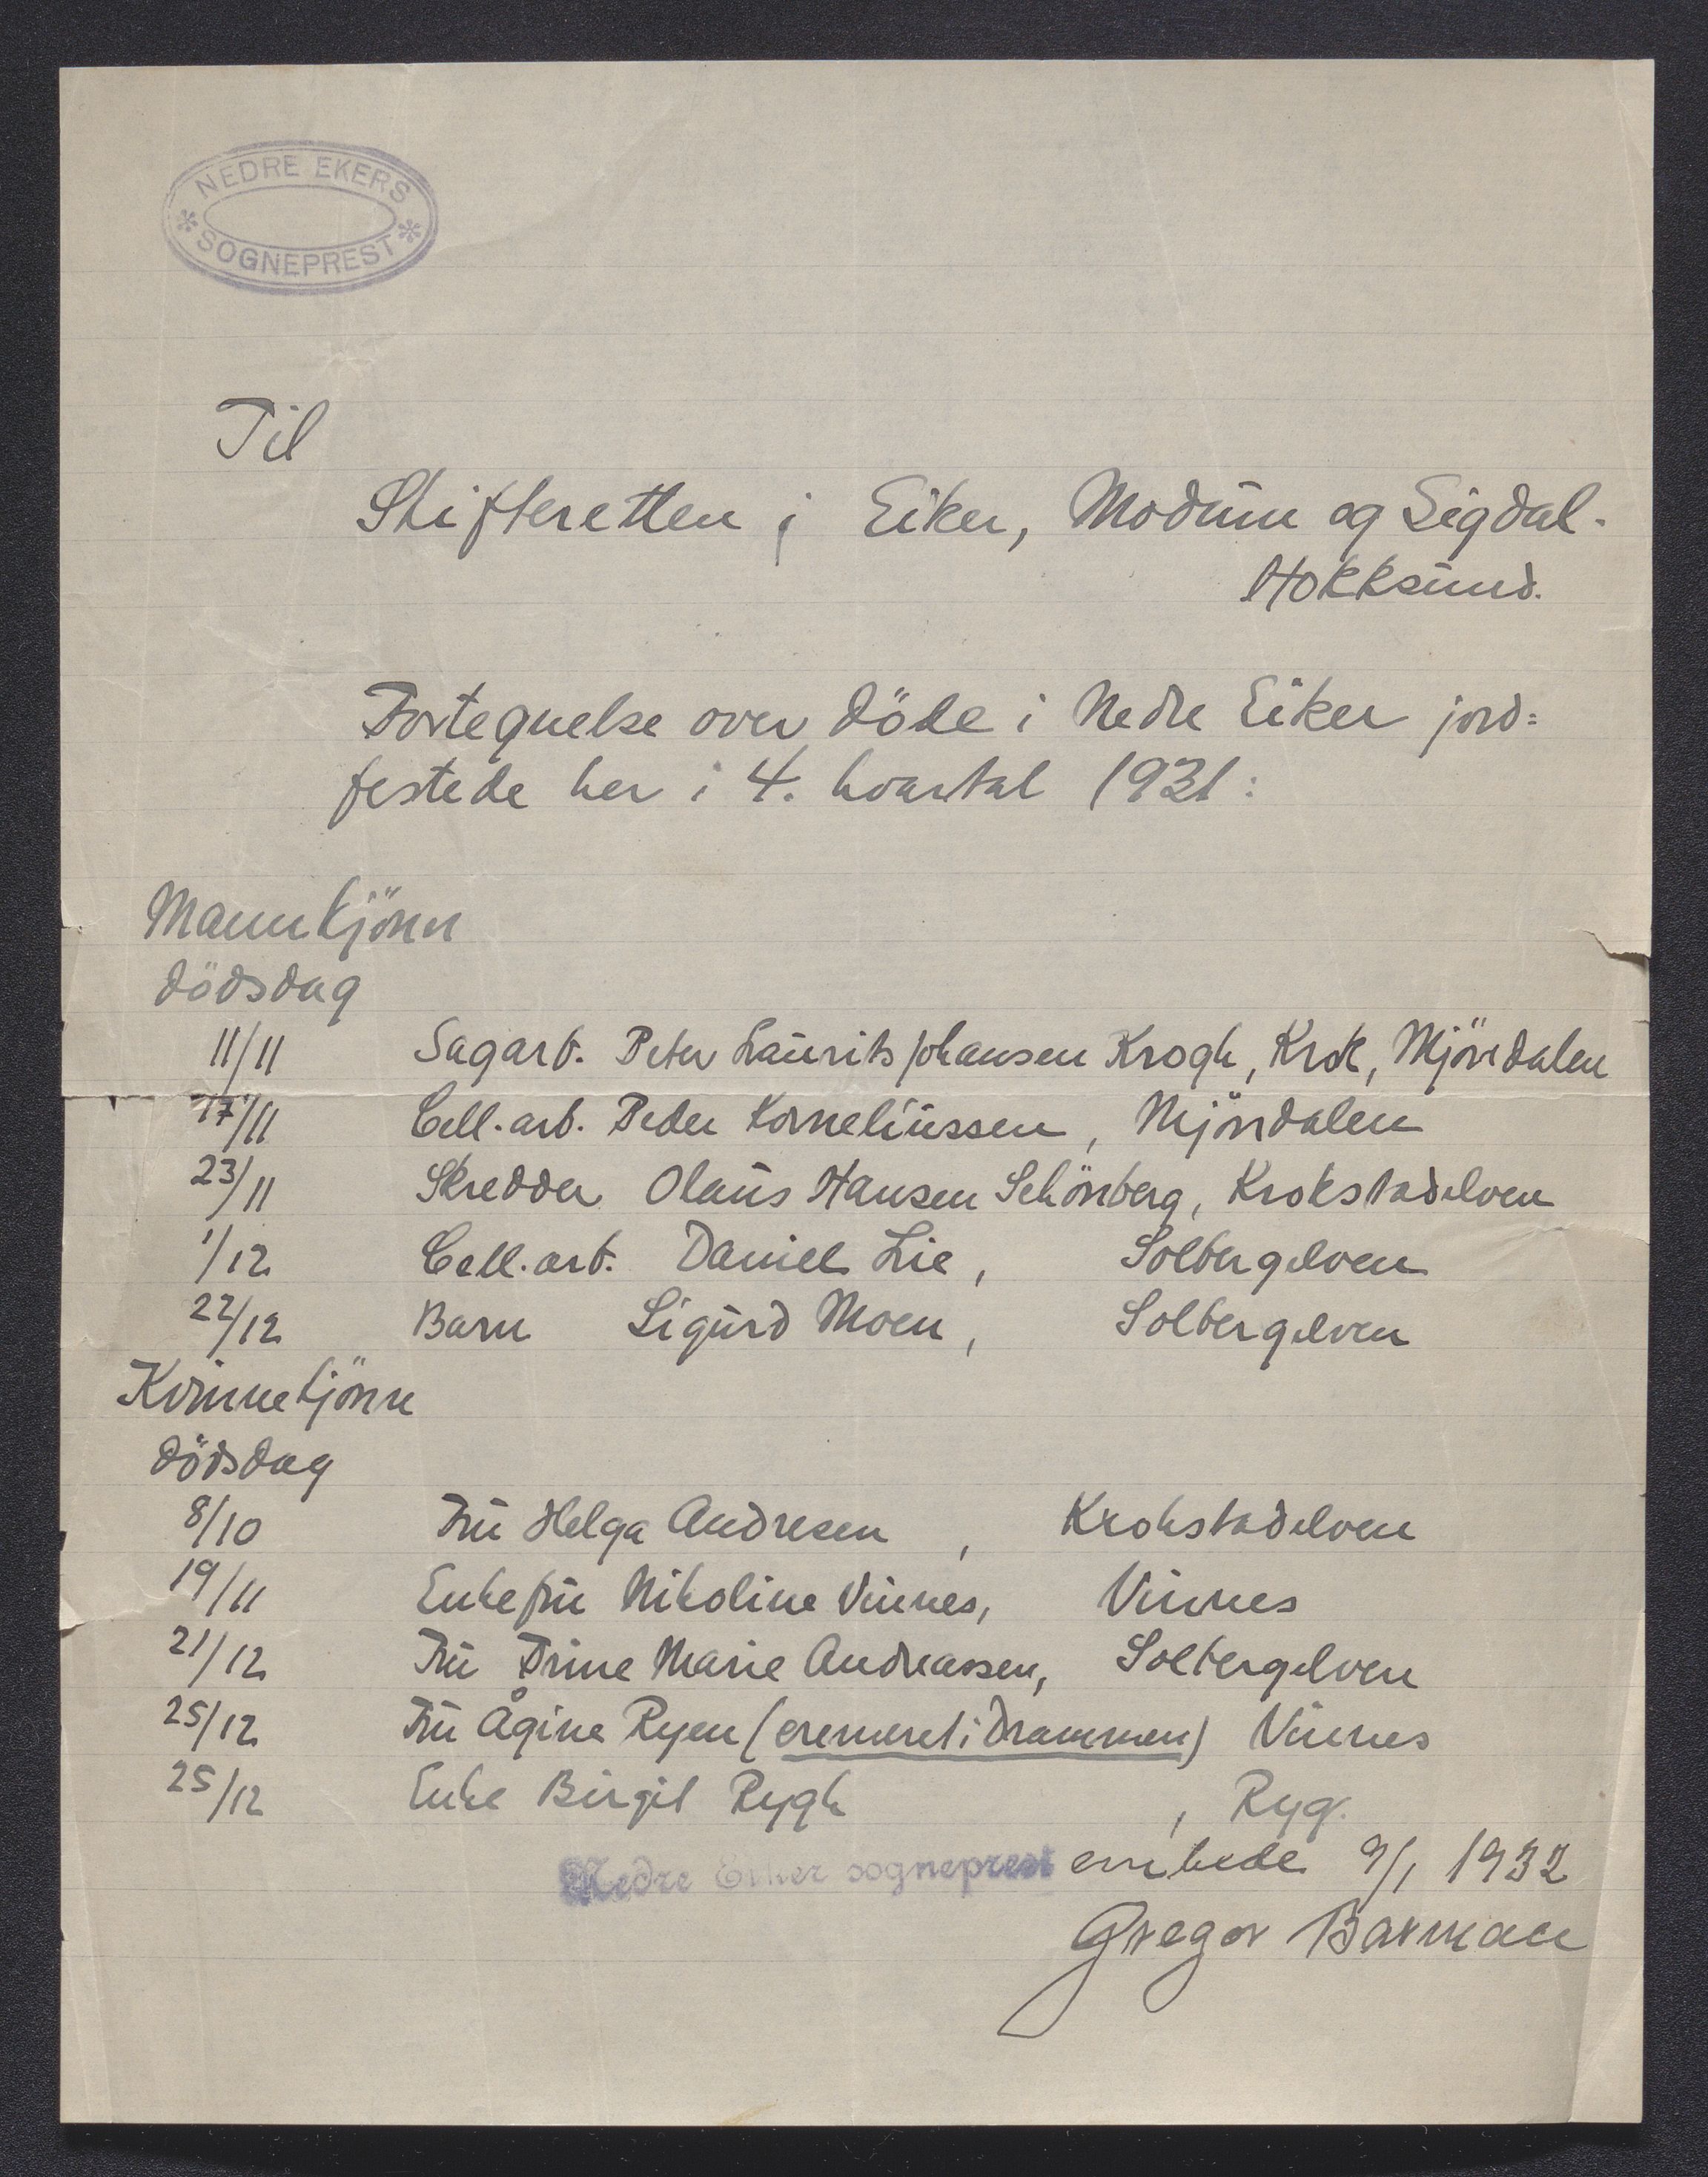 NEDRE EKERS
SOGNEPREST
Til
Skifteretten i Eiker, Modum og Sigdal.
Hokksund.
Fortegnelse over döde i Nedre Eiker jord=
festede her i 4. kvartal 1931:
Mannkjönn
dödsdag
11/11 Sagarb. Peter Laurits Johansen Krogh, Krok, Mjöndalen
17/11 Cell.arb. Peder Korneliussen, Mjöndalen
23/11 Skredder Olaus Hansen Schönberg, Krokstadelven
1/12 Cell.arb. Daniel Lie, Solbergelven
22/12 Barn Sigurd Moen, Solbergelven
Kvinnekjönn
dödsdag
8/10 Fru Helga Andresen, Krokstadelven
19/11 Enkefru Nikoline Vinnes, Vinnes
21/12 Fru Trine Marie Andreassen, Solbergelven
25/12 Fru Ågine Ryen (cremeret i Drammen) Vinnes
25/12 Enke Birgit Rygh, Ryg.
Nedre Eiker sogneprest embede 9/1 1932
Gregor Barman